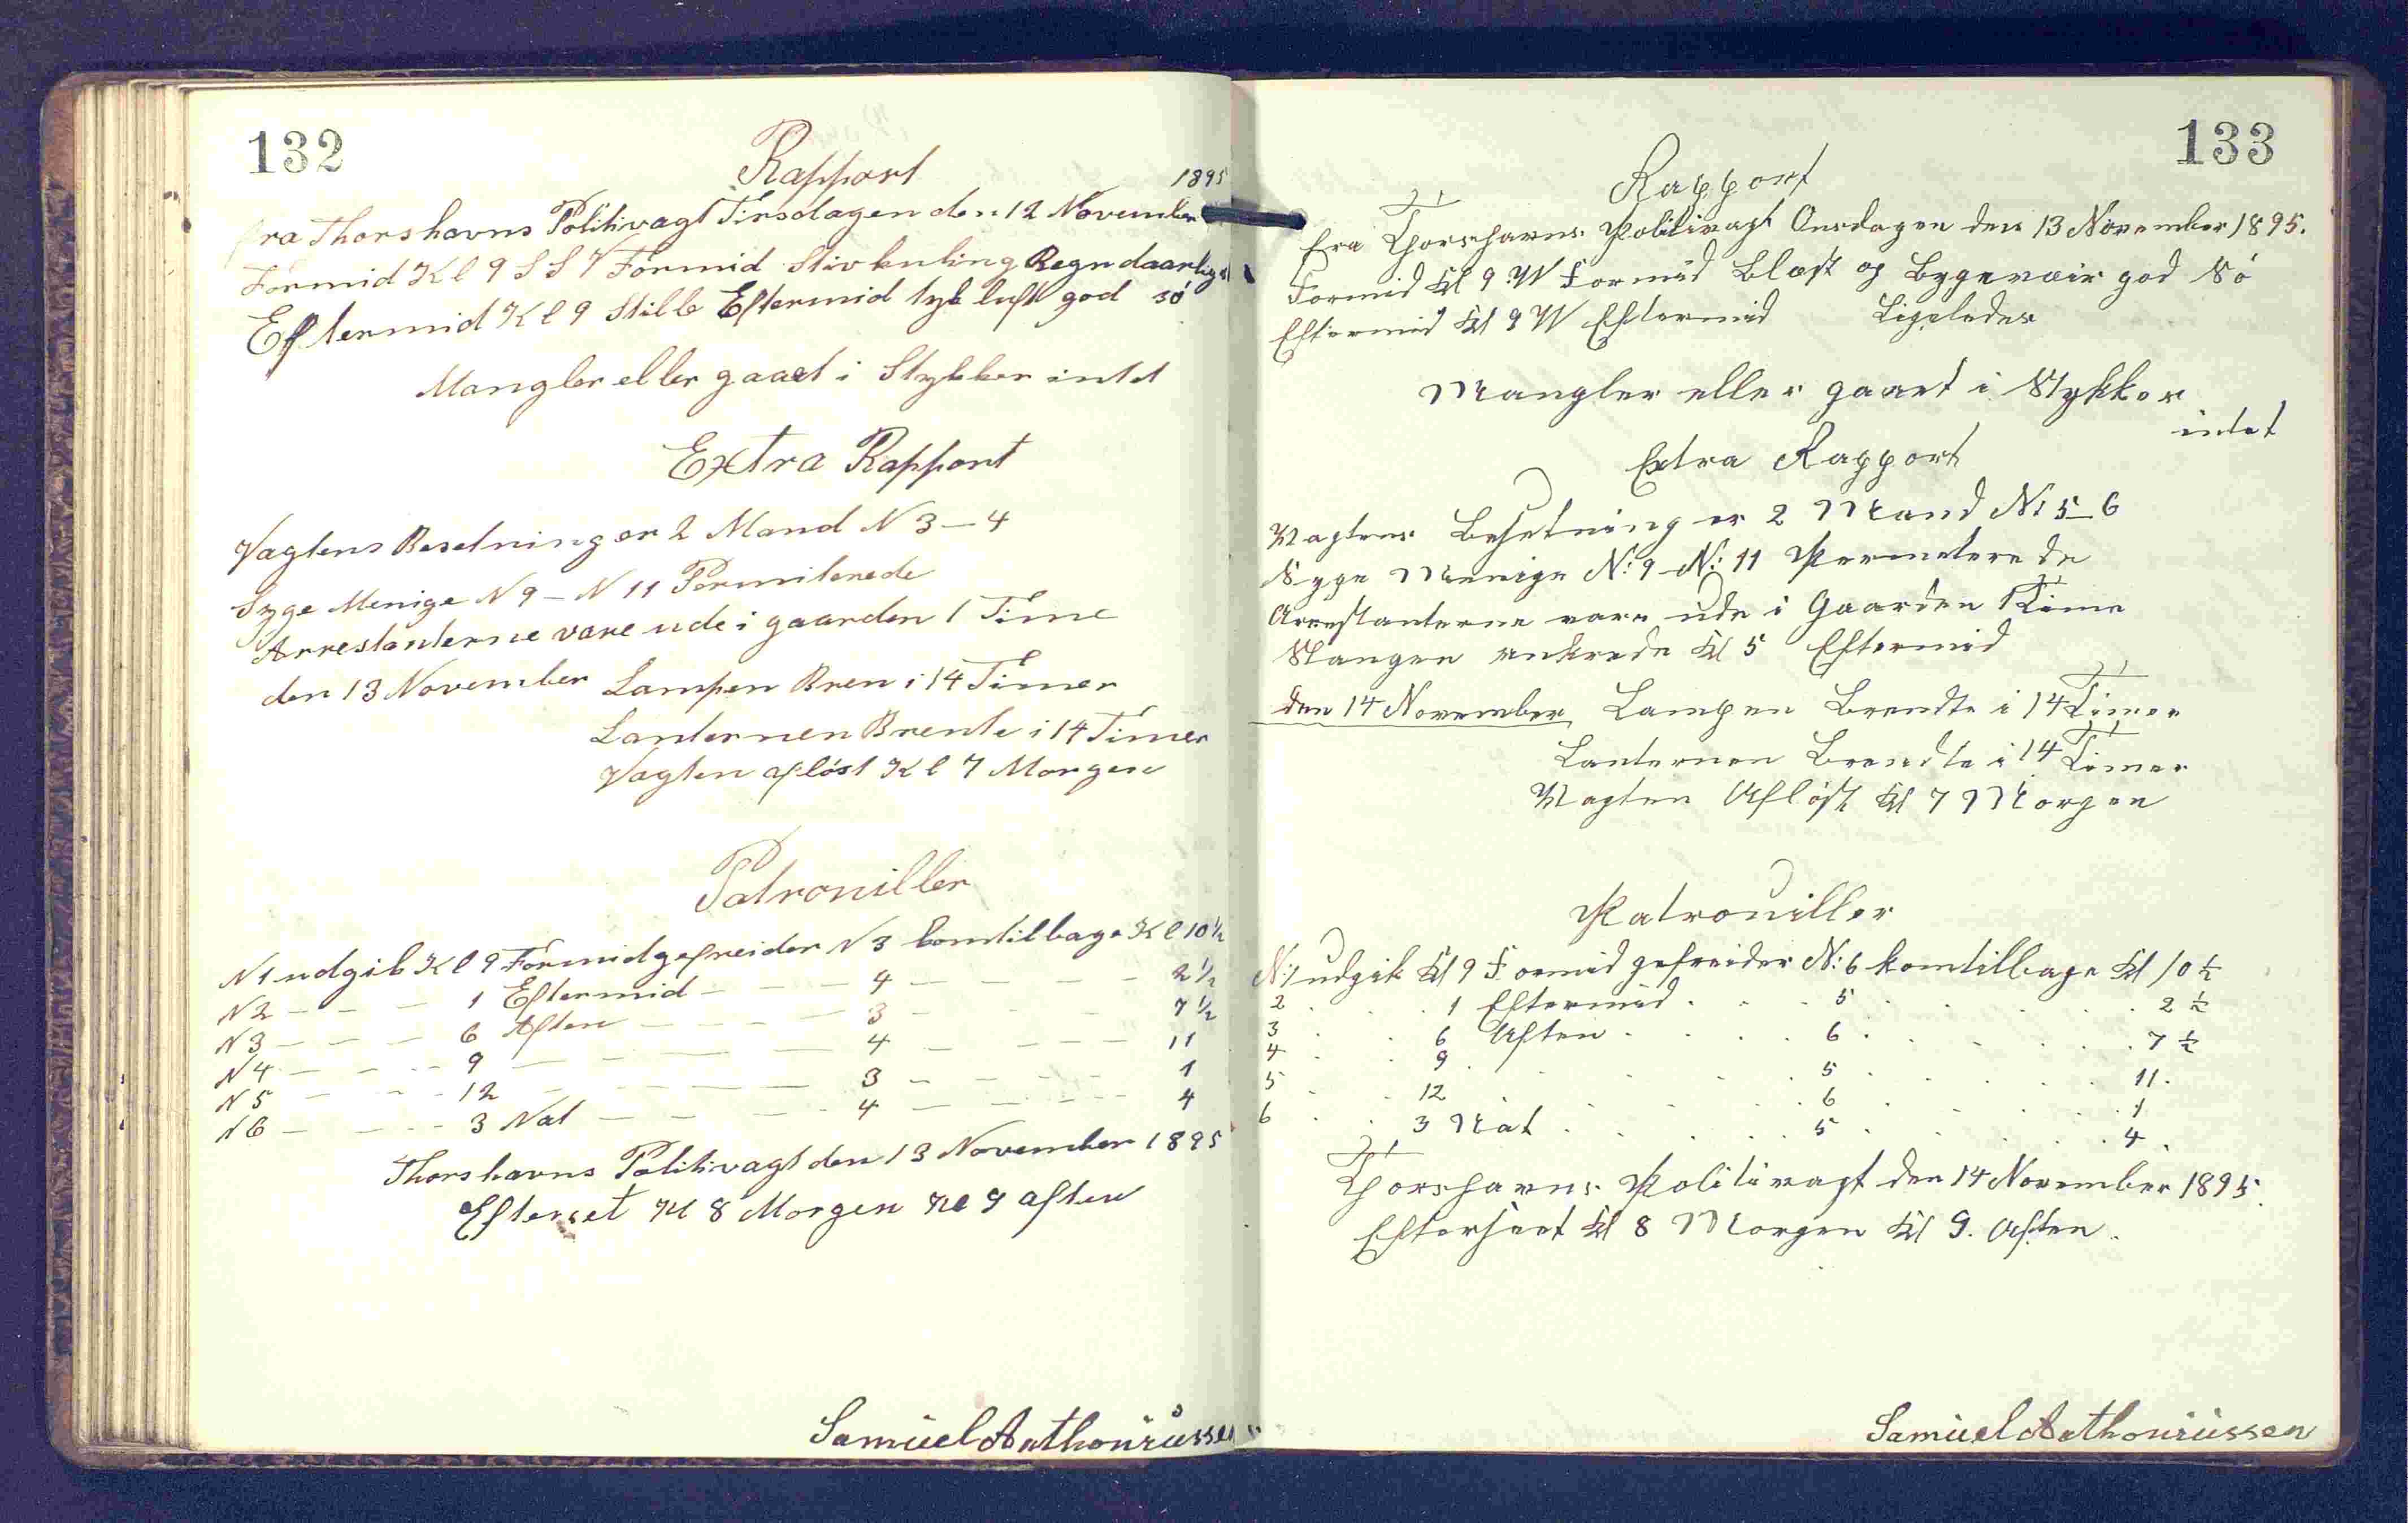 132
Rapport
1895
fra Thorshavns Politivagt Tirsdagen den 12 November
Formid Kl 9 S S V Formid Stivkuling Regn daarlig
Eftermid Kl 9 Stille Eftermid tyk luft god sö
Mangler eller gaaet i Stykker intet
Extra Rapport
Vagtens Besetning er 2 Mand N 3 — 4
Syge Menige N 9 — N 11 Permiterede
Arrestanterne vare ude i gaarden 1 Time
den 13 November Lampen Bren i 14 Timer
Lanternen Brente i 14 Timer
Vagten afløst Kl 7 Morgen
Patrouiller
N 1 udgik Kl 9 Formid gefreider N 3 komtilbage Kl 10½
N 2 — — — 1 Eftermid — — — 4 — — — — 2½
N 3 — — — 6 Aften — — — 3 — — — — 7½
N 4 — — — 9 — — — — 4 — — — — 11
N 5 — — — 12 — — — — 3 — — — — 1
N 6 — — — 3 Nat — — — 4 — — — — 4
Thorshavns Politivagt den 13 November 1895
Efterset Kl 8 Morgen Kl 9 aften
Samuel Anthoniussen
133
Rapport
Fra Thorshavns Politivagt Onsdagen den 13 November 1895.
Formid Kl 9 W Formid Blæst og Bygevair god Sö
Eftermid Kl 9 W Eftermid Ligeledes
Mangler eller gaaet i Stykker
intet
Extra Rapport
Vagtens Besetning er 2 Mand N: 5 — 6
Syge Menige N: 9 — N: 11 Permeterede
Arrestanterne vare ude i Gaarden 1 Time
Stangen ankrede Kl 5 Eftermid
den 14 November Lampen Brendte i 14 Timer
Lanternen Brendte i 14 Timer
Vagten Afløst Kl 7 Morgen
Patrouiller
N: 1 udgik Kl 9 Formid gefreider N: 6 komtilbage Kl 10½
2 . . . 1 Eftermid . . . 5 . . . . 2½
3 . . . 6 Aften . . . 6 . . . . 7½
4 . . . 9 . . . . 5 . . . . 11.
5 . . . 12 . . . . 6 . . . . 1
6 . . . 3 Nat . . . 5 . . . . 4.
Thorshavns Politivagt den 14 November 1895.
Efterseet Kl 8 Morgen Kl 9. Aften.
Samuel Anthoniussen